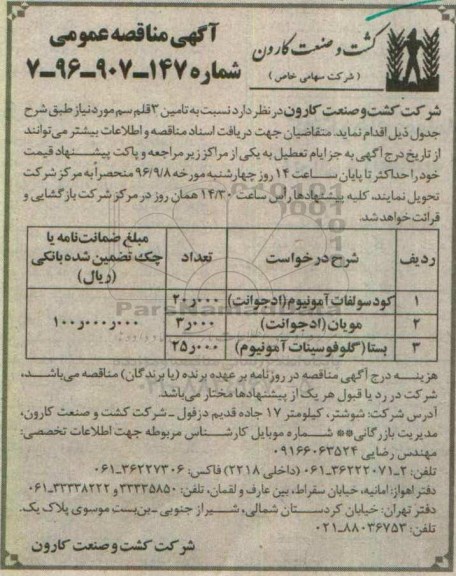 کشت و صنعت کارون
( شرکت سهامی خاص )
آگهی مناقصه عمومی
شماره ۱۴۷-۹۰۷-۹۶-۷
شرکت کشت و صنعت کارون در نظر دارد نسبت به تامین ۳ قلم سم مورد نیاز طبق شرح
جدول ذیل اقدام نماید. متقاضیان جهت دریافت اسناد مناقصه و اطلاعات بیشتر می‌توانند
از تاریخ درج آگهی به جز ایام تعطیل به یکی از مراکز زیر مراجعه و پاکت پیشنهاد قیمت
خود را حداکثر تا پایان ساعت ۱۴ روز چهارشنبه مورخه ۹۶/۹/۸ منحصراً به مرکز شرکت
تحویل نمایند. کلیه پیشنهادها راس ساعت ۱۴/۳۰ همان روز در مرکز شرکت بازگشایی و
قرائت خواهد شد.
ردیف شرح درخواست تعداد مبلغ ضمانت‌نامه یا چک تضمین شده بانکی (ریال)
۱ کود سولفات آمونیوم (ادجوانت) ۲۰٫۰۰۰
۲ مویان (ادجوانت) ۳٫۰۰۰ ۱۰۰٫۰۰۰٫۰۰۰
۳ بستا (گلوفوسینات آمونیوم) ۲۵٫۰۰۰
هزینه درج آگهی مناقصه در روزنامه بر عهده برنده (یا برندگان) مناقصه می‌باشد،
شرکت در رد یا قبول هر یک از پیشنهادها مختار می‌باشد.
آدرس شرکت: شوشتر، کیلومتر ۱۷ جاده قدیم دزفول - شرکت کشت و صنعت کارون،
مدیریت بازرگانی ** شماره موبایل کارشناس مربوطه جهت اطلاعات تخصصی:
مهندس رضایی ۰۹۱۶۶۰۶۳۵۲۴
تلفن: ۲-۳۶۲۲۲۰۷۱-۰۶۱ (داخلی ۲۲۱۸) فاکس: ۳۶۲۲۷۳۰۶-۰۶۱
دفتر اهواز: امانیه، خیابان سقراط، بین عارف و لقمان، تلفن: ۳۳۳۳۵۸۵۰ و ۳۳۳۳۸۲۲۲-۰۶۱
دفتر تهران: خیابان کردستان شمالی، شیراز جنوبی - بن‌بست موسوی پلاک یک.
تلفن: ۸۸۰۳۶۷۵۳-۰۲۱
شرکت کشت و صنعت کارون